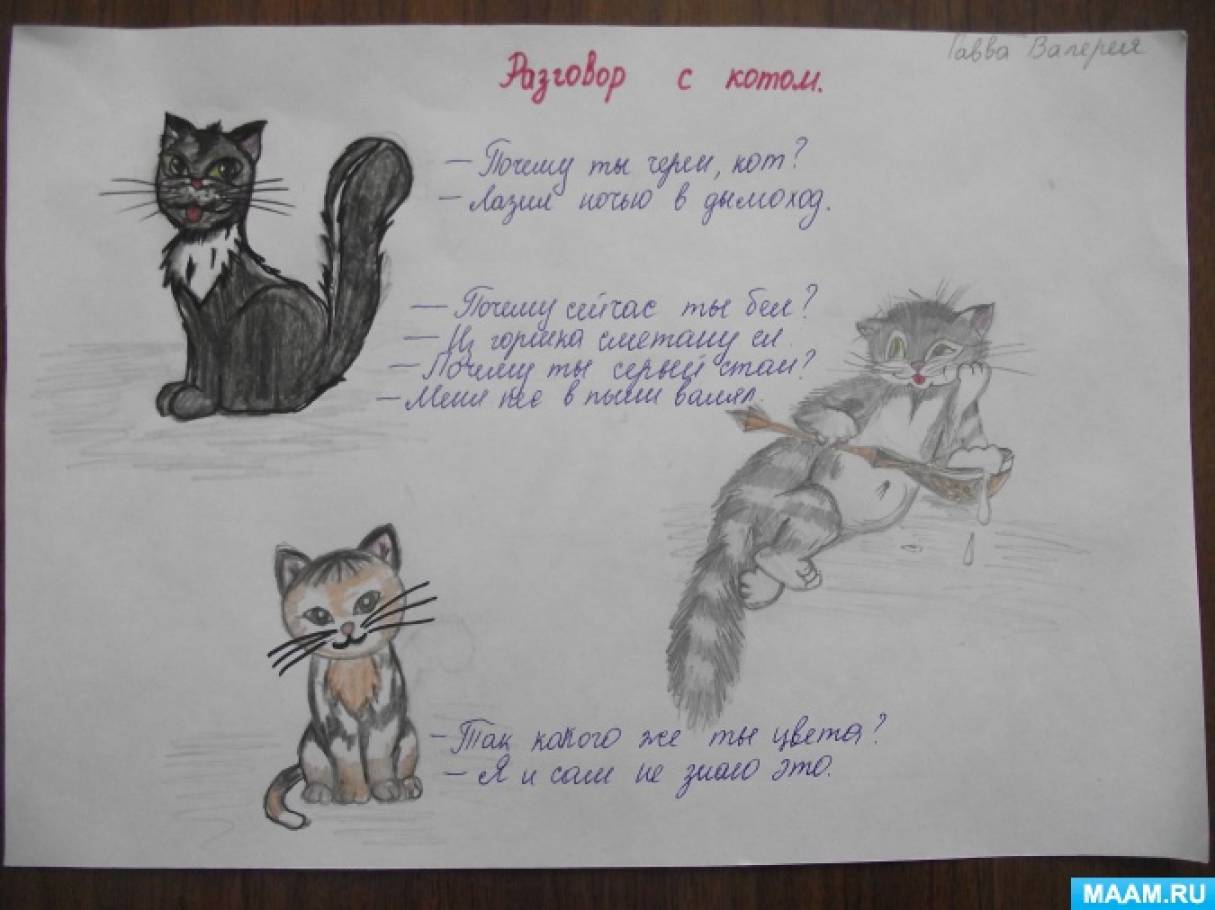 Гавва Валерия
Разговор с котом.
— Почему ты черен, кот?
— Лазил ночью в дымоход.
— Почему сейчас ты бел?
— Из горшка сметану ел.
— Почему ты серый стал?
— Меня пес в пыли валял.
— Так какого же ты цвета?
— Я и сам не знаю это.
MAAM.RU